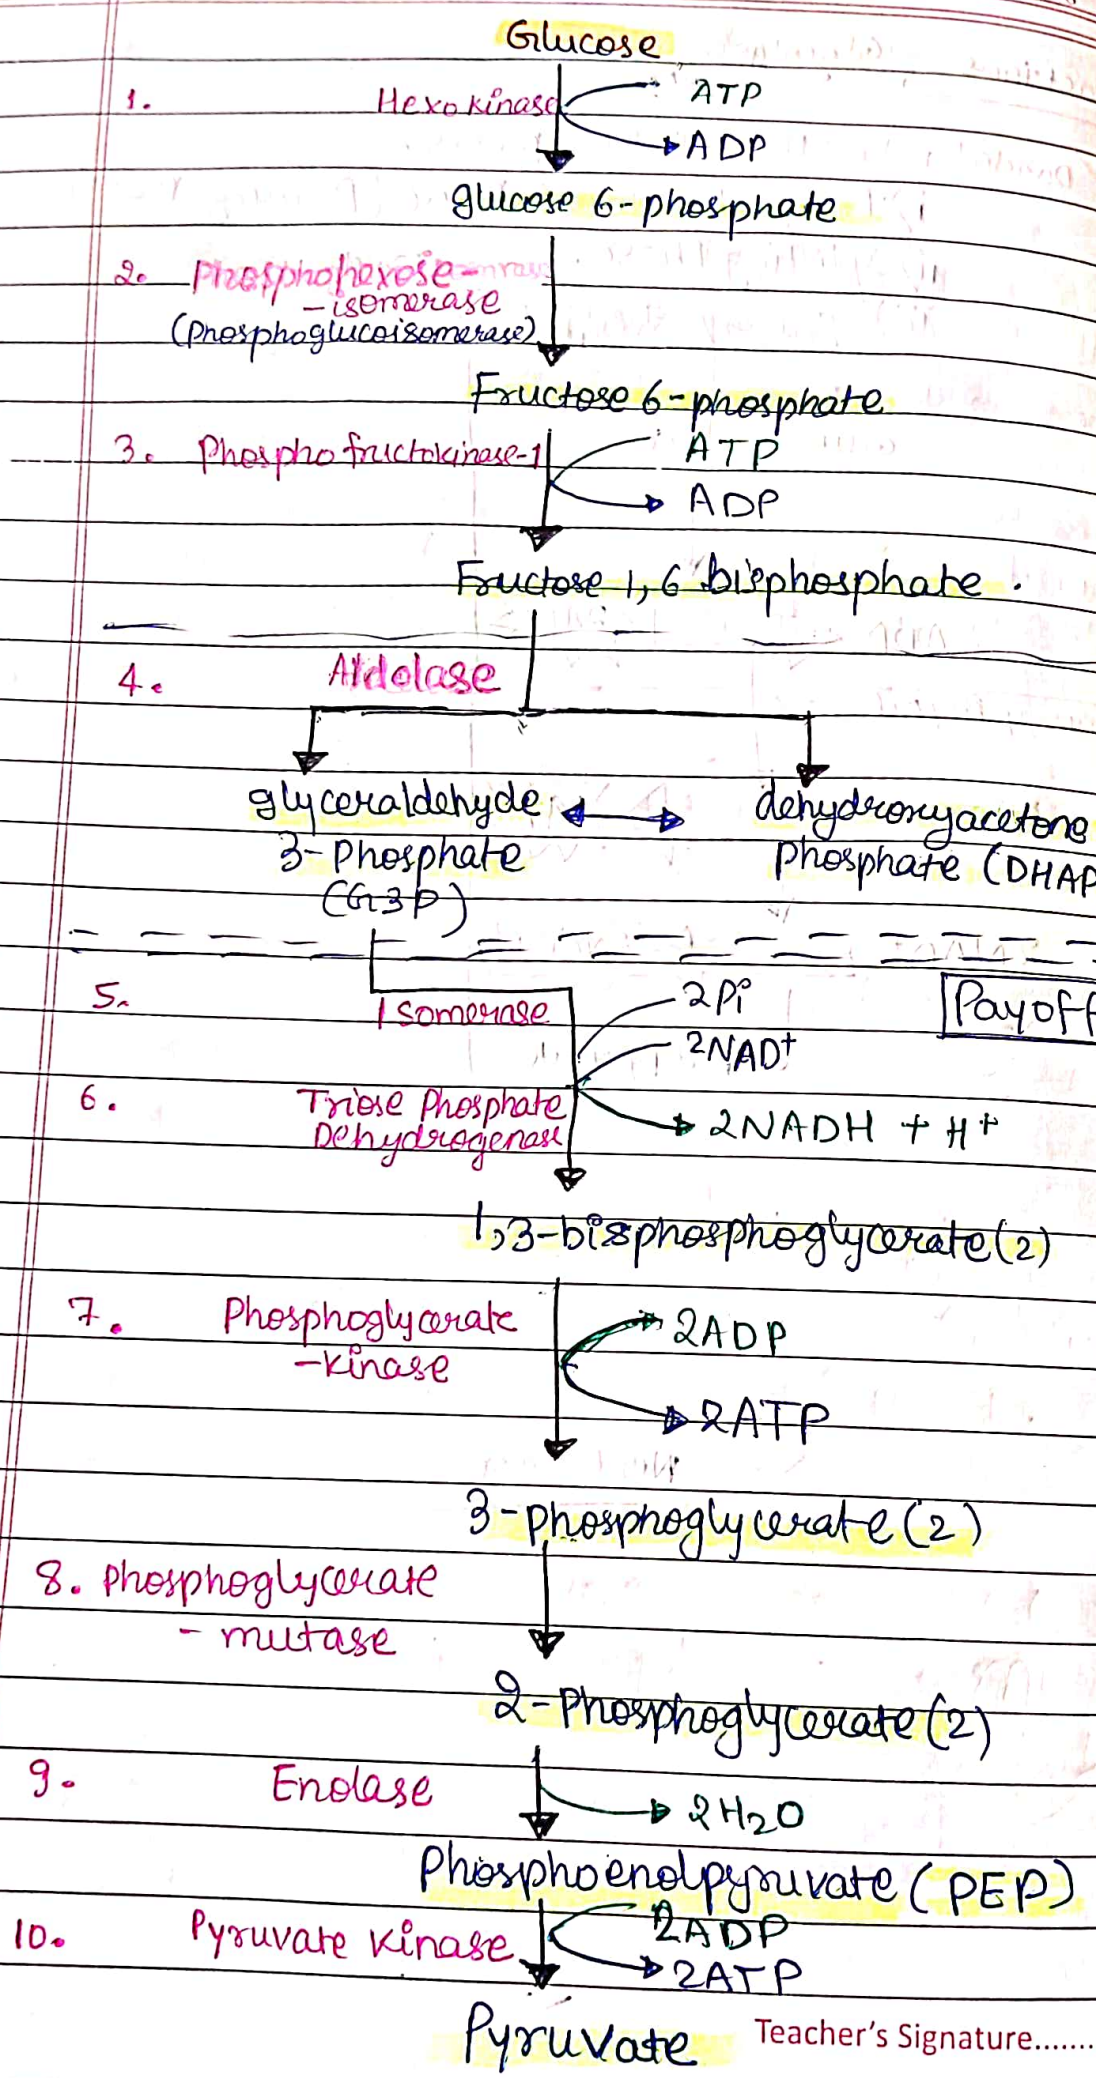 Glucose
1. Hexokinase ATP
ADP
glucose 6-phosphate
2. Phosphohexose-
-isomerase
(Phosphoglucoisomerase)
Fructose 6-phosphate
3. Phosphofructokinase-1 ATP
ADP
Fructose 1,6 bisphosphate.
4. Aldolase
glyceraldehyde dehydroxyacetone
3-Phosphate Phosphate (DHAP
(G3P)
5. Isomerase 2Pi Payoff
2NAD+
6. Triose Phosphate 2NADH + H+
Dehydrogenase
1,3-bisphosphoglycerate(2)
7. Phosphoglycerate 2ADP
-kinase
2ATP
3-phosphoglycerate(2)
8. Phosphoglycerate
- mutase
2-Phosphoglycerate(2)
9. Enolase 2H2O
Phosphoenolpyruvate (PEP)
10. Pyruvate kinase 2ADP
2ATP
Pyruvate Teacher's Signature.......